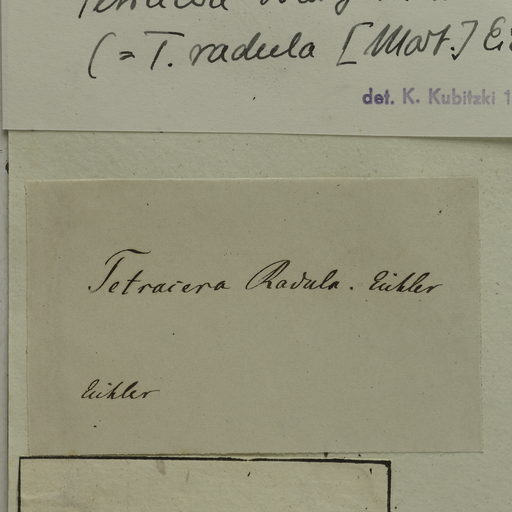 Tetracera
(= T. radula [Mart.] Ei
det. K. Kubitzki 1
Tetracera Radula. Eichler
Eichler